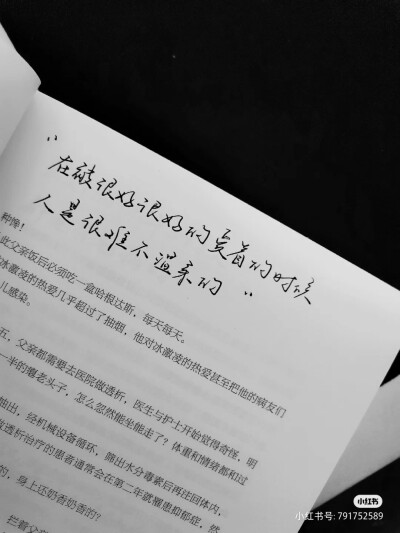 “在被很好很好的爱着的时候
人是很难不温柔的”
种像！
此父亲饭后必须吃一盒哈根达斯，每天每天。
冰激凌的热爱几乎超过了抽烟，他对冰激凌的热爱甚至把他的病友们
儿感染。
五，父亲都需要去医院做透析，医生与护士开始觉得奇怪，明
一半的磨老头子，怎么忽然能坐能走了？体重和情绪都和过
抽出，经机械设备循环，筛出水分毒素后再注回体内，
透析治疗的患者通常会在第二年就罹患抑郁症，然
的，身上还奶香奶香的？
拦着父
小红书
小红书号: 791752589